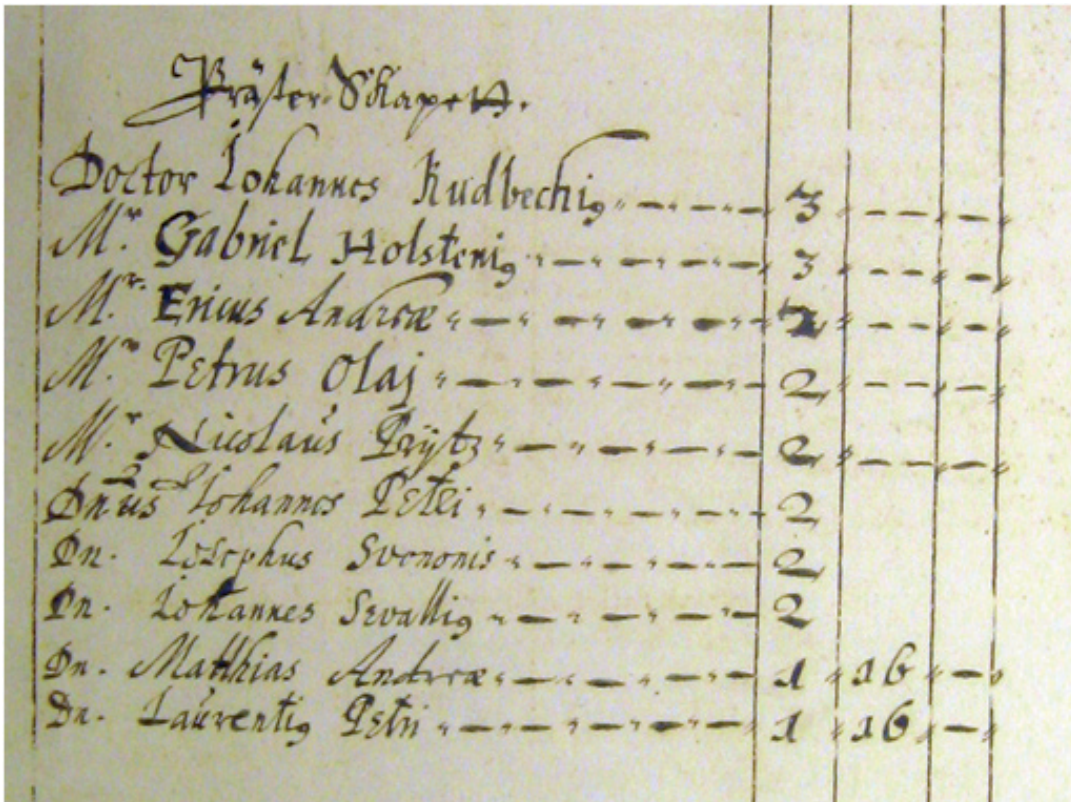 Präster-Skapett.
Doctor Johannes Rudbechi9 " — " — " — " — 3 " — — " — "
M.r Gabriel Holsteni9 " — " — " — " — 3 " — — " — "
M.r Ericus Andreæ " — " — " — " — " — 2 " — — " — "
M.r Petrus Olaj " — " — " — " — " — 2 " — — " — "
M.r Nicolaus Prytz " — " — " — " — 2 " — — " — "
Dnus Johannes Petri " — " — " — " — 2
Dn. Josephus Svenonis " — " — " — " — 2
Dn. Johannes Sevalli9 " — " — " — " — 2
Dn. Matthias Andreæ " — " — " — " — 1 " 16 " — "
Dn. Laurenti9 Petri " — " — " — " — 1 " 16 " — "